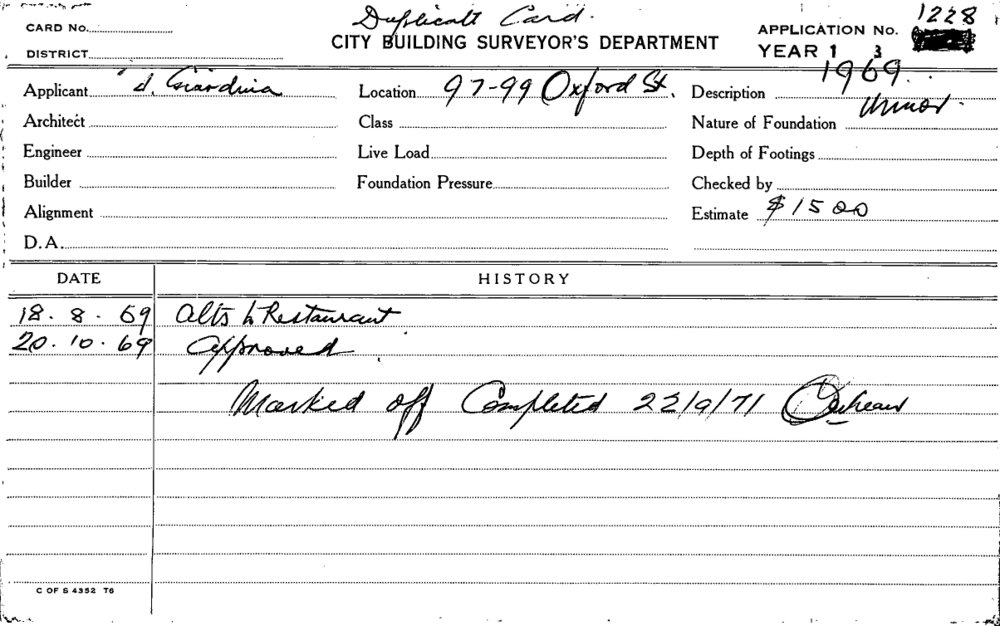 Duplicate Card.
CARD No.
CITY BUILDING SURVEYOR'S DEPARTMENT
APPLICATION No. 1228
DISTRICT
YEAR 1 3
1969.
Applicant Giardina Location 97-99 Oxford St. Description Minor.
Architect Class Nature of Foundation
Engineer Live Load Depth of Footings
Builder Foundation Pressure Checked by
Alignment Estimate $1500
D.A.
DATE HISTORY
18. 8. 69 Alts to Restaurant
20. 10. 69 Approved
Marked off Completed 22/9/71
C OF S 4352 T6